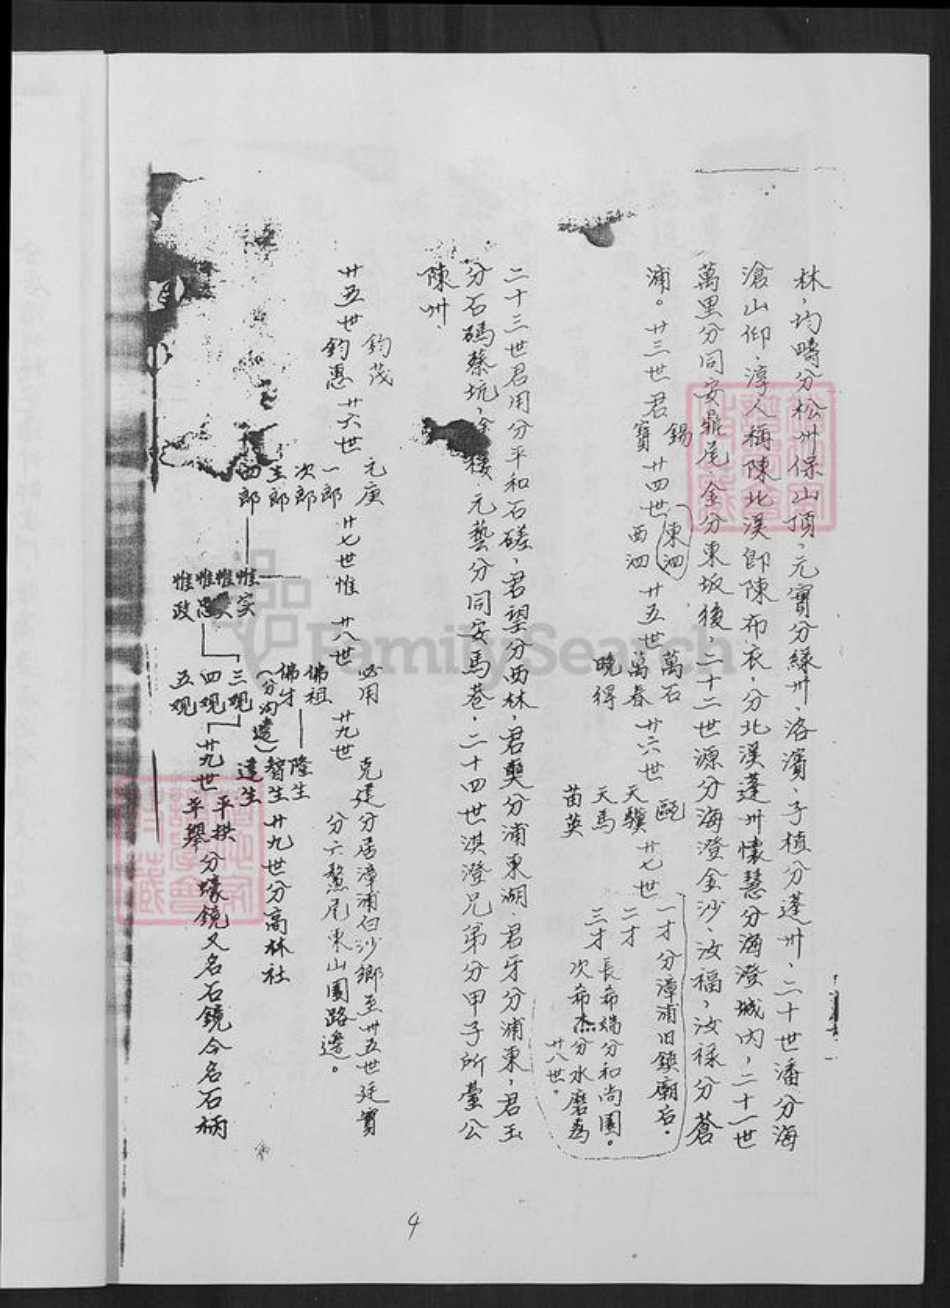 林，均疇分松州保山頂，元寶分綠卅，洛濱，子植分蓬卅，二十世潘分海
滄山仰，淳人稱陳北溪即陳布衣，分北溪蓬卅懷慧分海澄城內，二十一世
萬里分同安鼎尾，金分東坂後，二十二世源分海澄金沙，汝福，汝祿分蒼
浦。廿三世君錫 寶 廿四世 東泗 西泗 廿五世 萬石 萬春 曉得 廿六世 甌 天驥 天馬 苗英 廿七世 一才分漳浦旧鎮廟右。
二才 長希端分和尚園。
三才 次希杰分水磨為
廿八世。
二十三世君用分平和石磋，君望分西林，君奭分浦東湖，君牙分浦東，君玉
分石碼蔡坑，元藝分同安馬巷，二十四世淇澄兄弟分甲子所臺公
陳卅
鈞茂 元庚 必用 克建分居漳浦白沙鄉至卅五世廷實
廿五世 鈞惠 廿六世 一郎 次郎 三郎 四郎 廿七世惟 廿八世 廿九世 分六鰲尾東山園路邊。
惟实 惟忠 惟政
佛祖 隆生
佛才 智生 廿九世分高林社
達生
三观 四观 五观
廿九世 平拱 平舉 分壕鏡又名石鏡今名石柄
4
FamilySearch